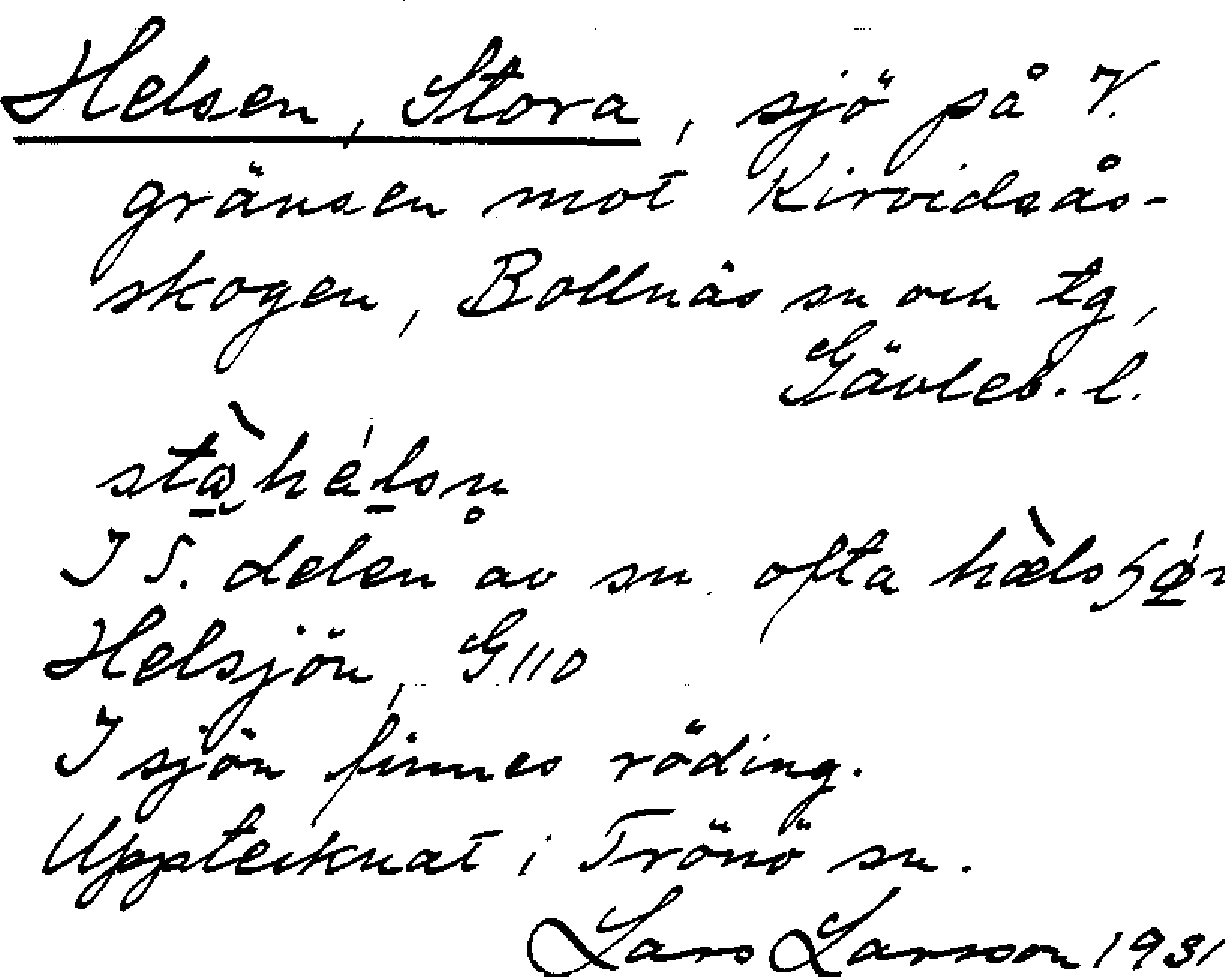 Helsen, Stora, sjö på V.
gränsen mot Kirvidsås-
skogen, Bollnäs sn och tg,
Gävleb. l.
I S. delen av sn ofta
Helsjön, G110
I sjön finnes röding.
Upptecknat i Trönö sn.
Lars Larsson 1931